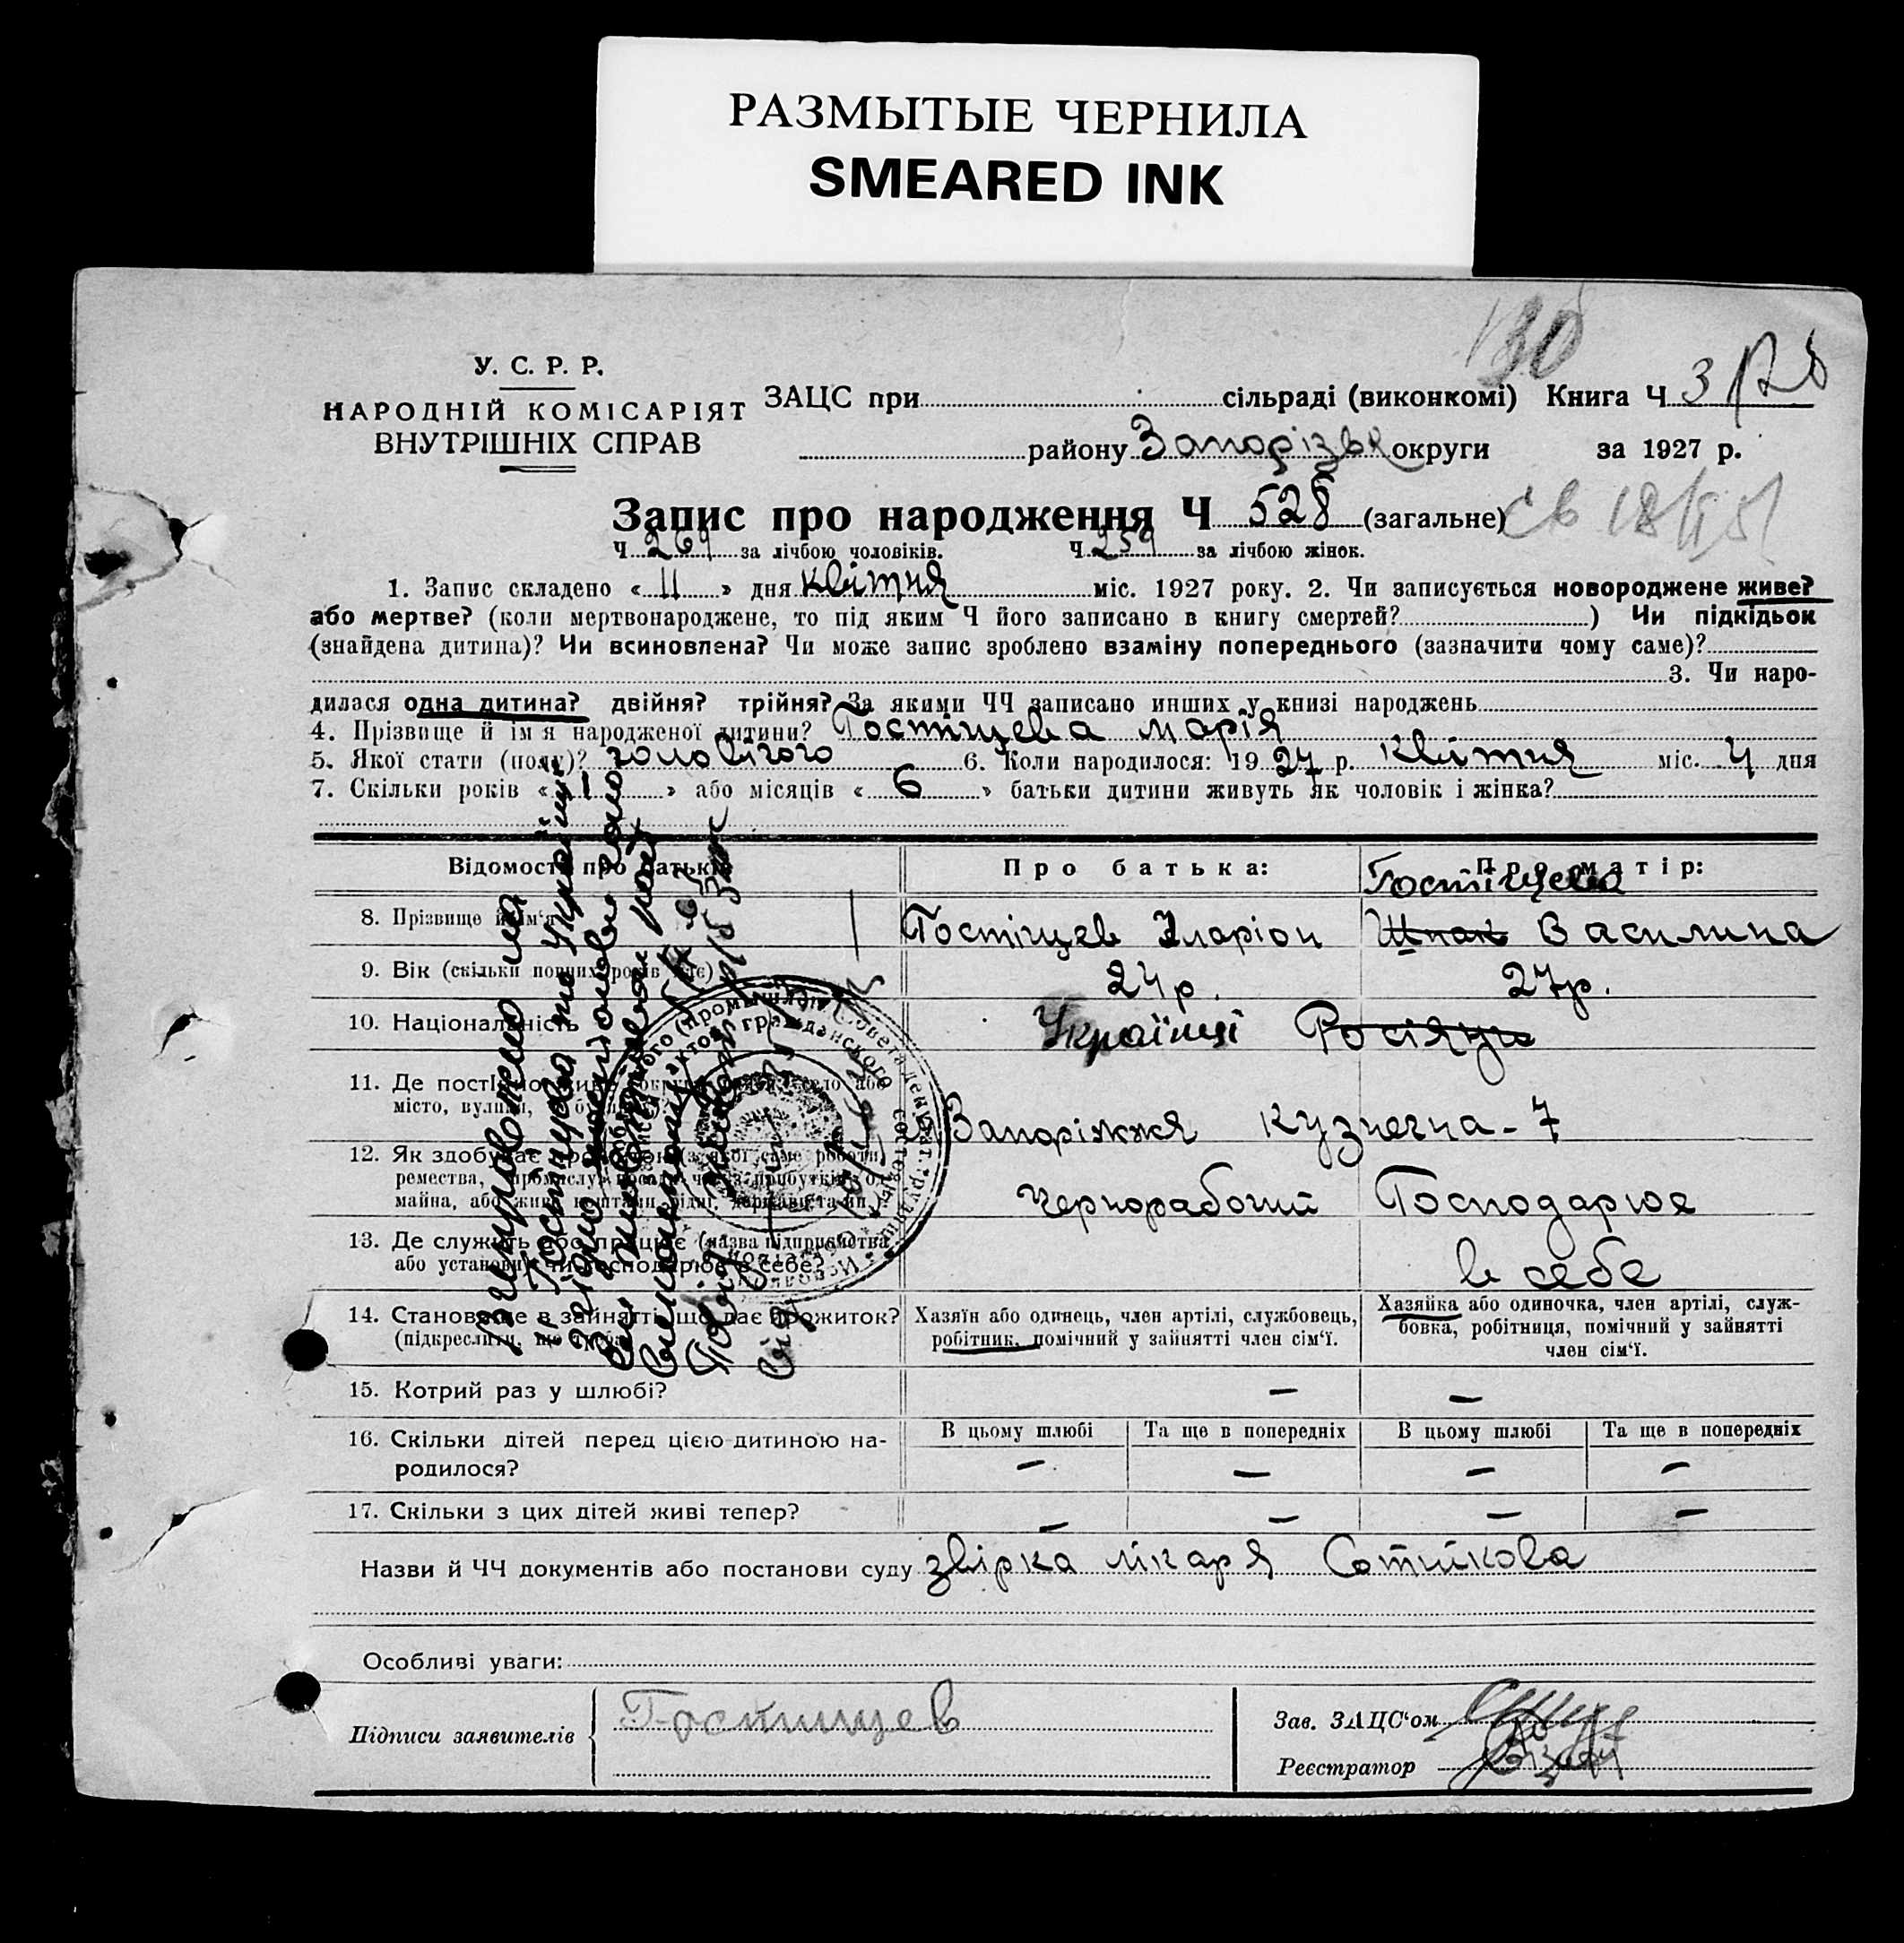 РАЗМЫТЫЕ ЧЕРНИЛА
SMEARED INK
130
У. С. Р. Р.
НАРОДНІЙ КОМІСАРІЯТ
ВНУТРІШНІХ СПРАВ
ЗАЦС при сільраді (виконкомі) Книга Ч 3
району Запорізьк округи за 1927 р.
Запис про народження Ч 528 (загальне)
Ч 269 за лічбою чоловіків. Ч 259 за лічбою жінок.
1. Запис складено « 11 » дня квітня міс. 1927 року. 2. Чи записується новороджене живе?
або мертве? (коли мертвонароджене, то під яким Ч його записано в книгу смертей? ) Чи підкідьок
(знайдена дитина)? Чи всиновлена? Чи може запис зроблено взаміну попереднього (зазначити чому саме)?
3. Чи наро-
дилася одна дитина? двійня? трійня? За якими ЧЧ записано инших у книзі народжень
4. Прізвище й ім'я народженої дитини? Гостіщева Марія
5. Якої стати (полу)? чоловічого 6. Коли народилося: 1927 р. Квітня міс. 4 дня
7. Скільки років « 1 » або місяців « 6 » батьки дитини живуть як чоловік і жінка?
Відомості про батьків Про батька: Про матір:
Гостіщева
8. Прізвище й ім'я Гостіщев Іларіон Шпак Василина
9. Вік (скільки повних років має) 24 р. 27 р.
10. Національність Українці Росіяць
11. Де постійно живе (округа, район, село або
місто, вулиця, Ч будинку)? Запоріжжя Кузнечна - 7
12. Як здобуває прожиток (з якої саме роботи,
ремества, промислу, посади чи з прибутків од
майна, або живе коштами рідні, держави та ин.) Чернорабочий Господарює
13. Де служить або працює (назва підприємства
або установи) чи господарює в себе? в себе
14. Становище в зайнятті, що дає прожиток?
(підкреслити, що треба)
Хазяїн або одинець, член артілі, службовець,
робітник, помічний у зайнятті член сім'ї.
Хазяйка або одиночка, член артілі, служ-
бовка, робітниця, помічний у зайнятті
член сім'ї.
15. Котрий раз у шлюбі? — —
16. Скільки дітей перед цією дитиною на-
родилося?
В цьому шлюбі Та ще в попередніх В цьому шлюбі Та ще в попередніх
— — — —
17. Скільки з цих дітей живі тепер? — — — —
Назви й ЧЧ документів або постанови суду звірка лікаря Сотникова
Особливі уваги:
Підписи заявителів Гостищев
Зав. ЗАЦС'ом
Реєстратор